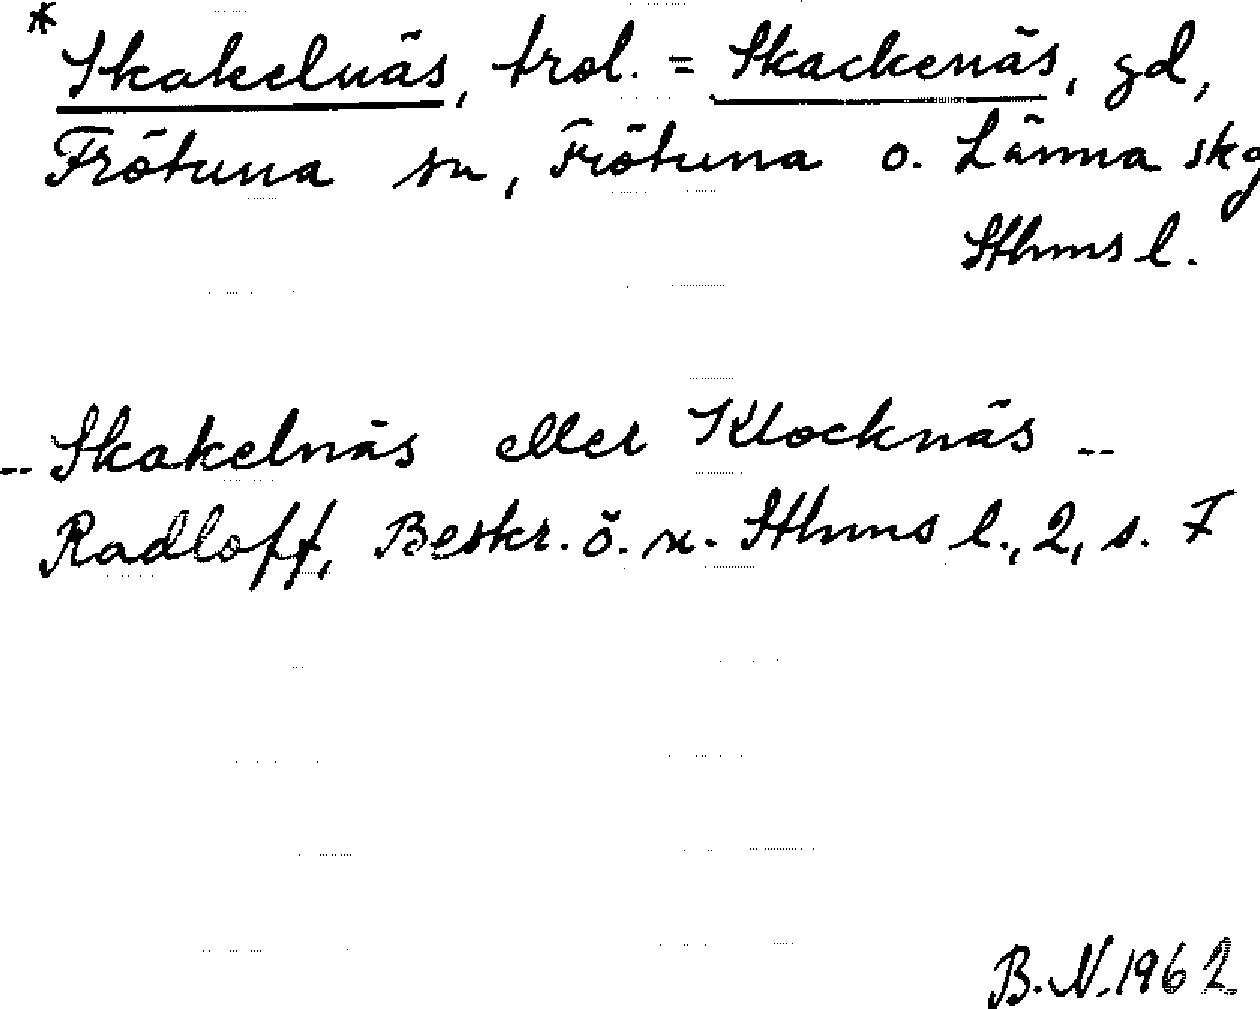 * Skakelnäs, trol. = Skackenäs, gd,
Frötuna sn, Frötuna o. Länna skg
Sthms l.
-- Skakelnäs eller Klocknäs --
Radloff, Beskr. ö. n. Sthms l., 2, s. 7
B.N. 1962